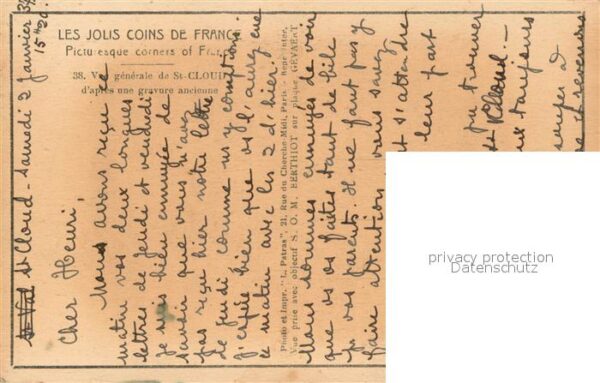 LES JOLIS COINS DE FRANCE
Picturesque corners of France
38. Vue générale de St-CLOUD
d'après une gravure ancienne
Photo et Impr. "L. Patras" 21, Rue du Cherche-Midi, Paris - Reproduction
Vue prise avec objectif S. O. M. BERTHIOT sur plaque GEVAERT
St Cloud - Samedi 2 Janvier
15h 30.
Cher Henri,
Nous avons reçu ce
matin vos deux longues
lettres de jeudi et vendredi
je suis bien ennuyée de
savoir que vous n'avez
pas reçu hier notre lettre
de jeudi comme vs y comptiez
J'espère bien que vs l'aurez eue
ce matin avec les 2 d'hier.
Nous sommes ennuyés de voir
que vs vs faites tant de bile
pr vos parents. Il ne faut pas y
faire attention vous savez
s'attendre
leur part
pu trouver
St Cloud. -
toujours
revenons
privacy protection
Datenschutz